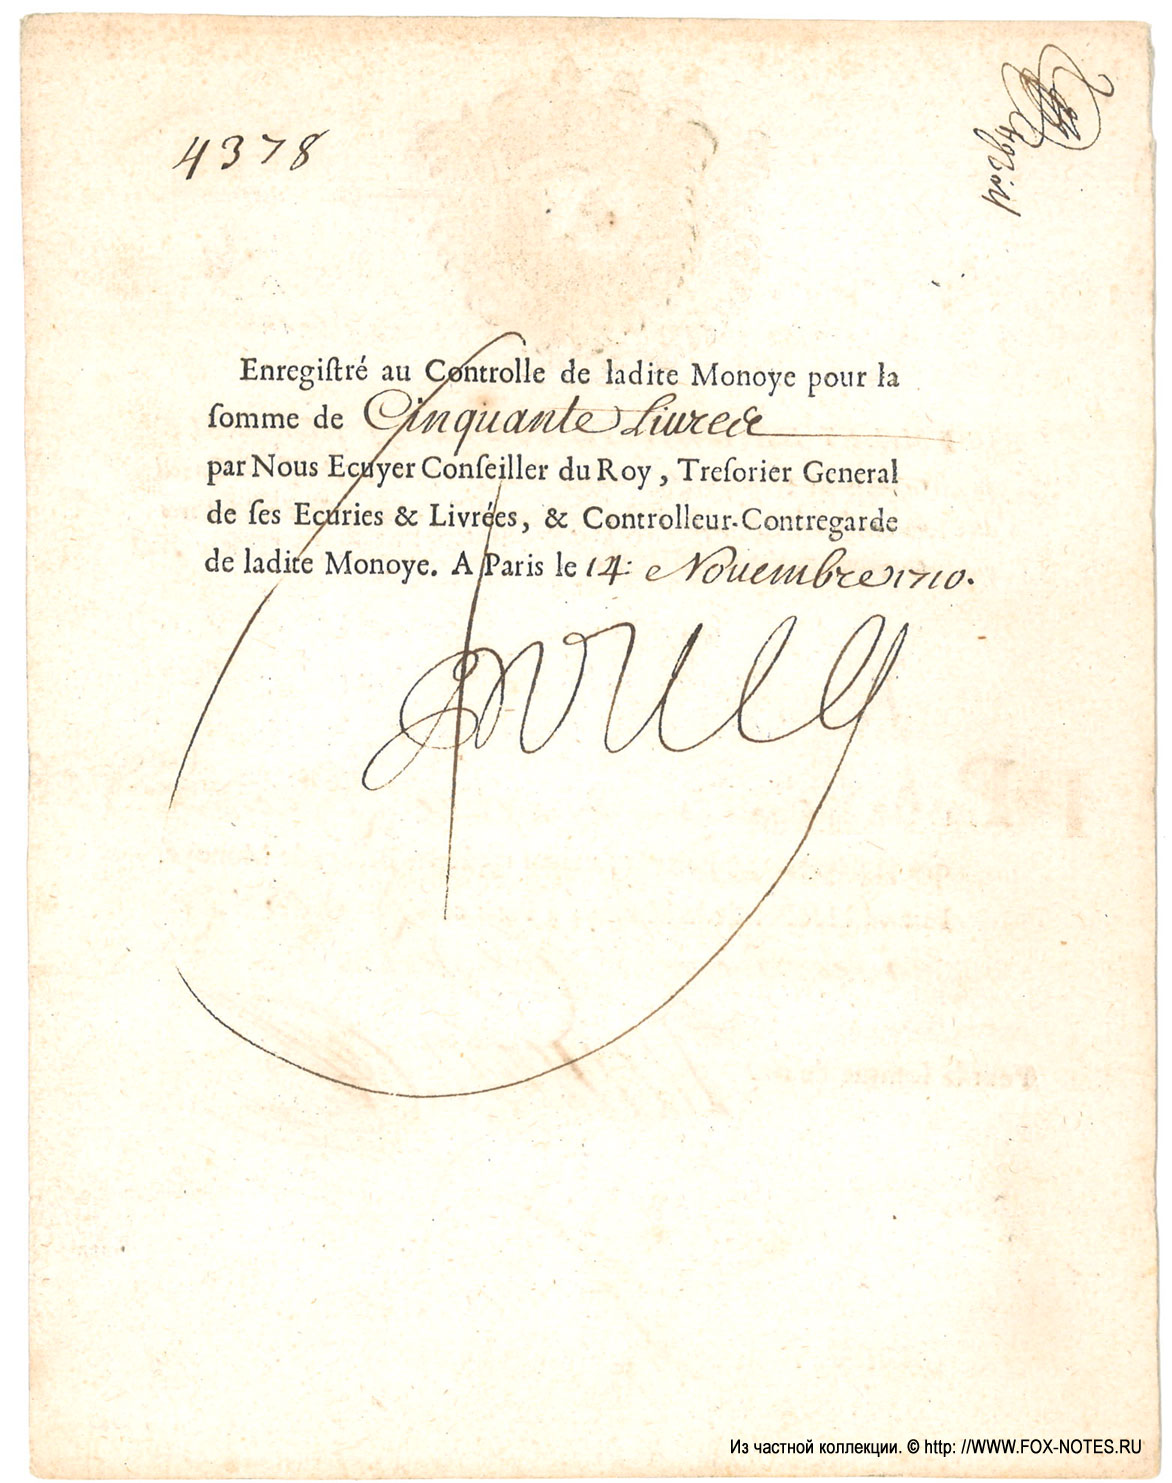 4378
Enregiſtré au Controlle de ladite Monoye pour la
ſomme de Cinquante Liures
par Nous Ecuyer Conſeiller du Roy, Treſorier General
de ſes Ecuries & Livrées, & Controlleur-Contregarde
de ladite Monoye. A Paris le 14: Nouembre 1710.
Из частной коллекции. © http: //WWW.FOX-NOTES.RU